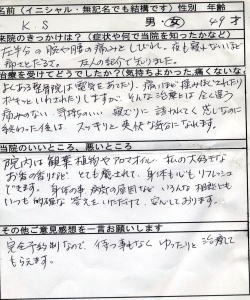 名前（イニシャル・無記名でも結構です）性別　年齢
K.S　男・女　49才
来院のきっかけは？（症状や何で当院を知ったかなど）
左半らの腕や腰の痛みとしびれ。夜も寝れないほど
痛くてたまらず、友人の紹介で知りました。
治療を受けてどうでしたか？（気持ちよかった、痛くないな
よくある整骨院は電気をあてたり、痛いほど揉みほぐされたり
ボキッといわれたりしますが、そんな治療とは全く違う
痛みのない、気持ちのいい
終わった後は、スッキリと爽快な気分になれます。
当院のいいところ、悪いところ
院内は観葉植物やアロマオイル 私の大好きな
お香の香りなど とても癒されて、身体も心もリフレッシュ
できます。身体の事、病気の原因など いろんな相談にも
いつも的確な答えをいただけて、安心しております。
その他ご意見感想を一言お願いします
完全予約制なので、待つ事もなく ゆったりと治療して
もらえます。